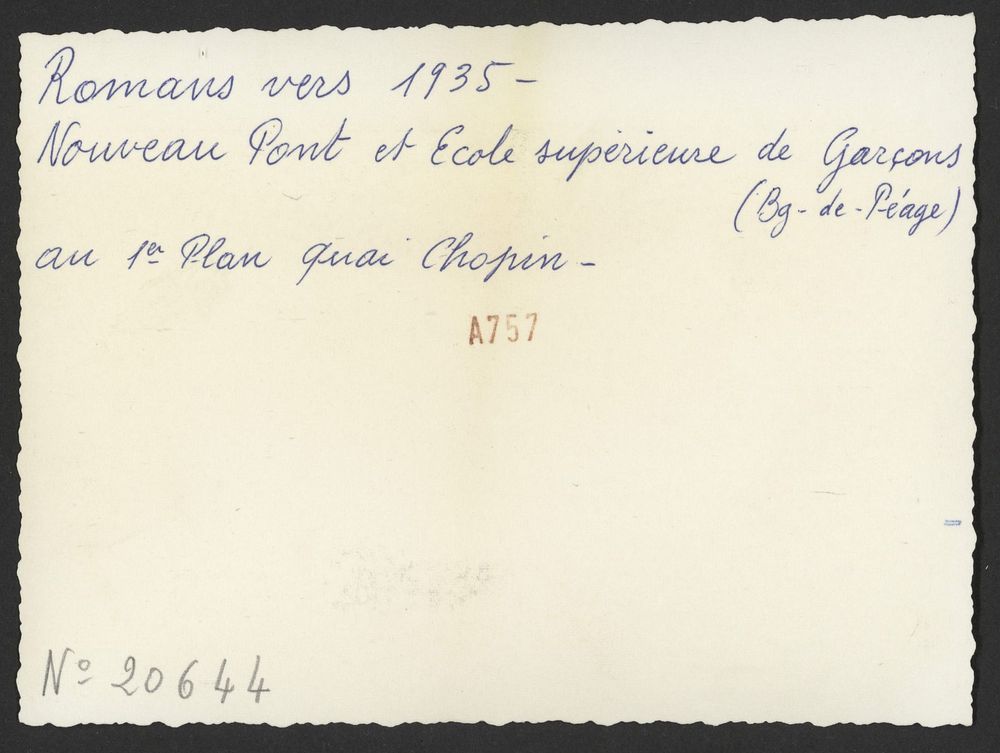 Romans vers 1935 -
Nouveau Pont et Ecole supérieure de Garçons
(Bg-de-Péage)
au 1er Plan Quai Chopin -
A757
Nº 20644